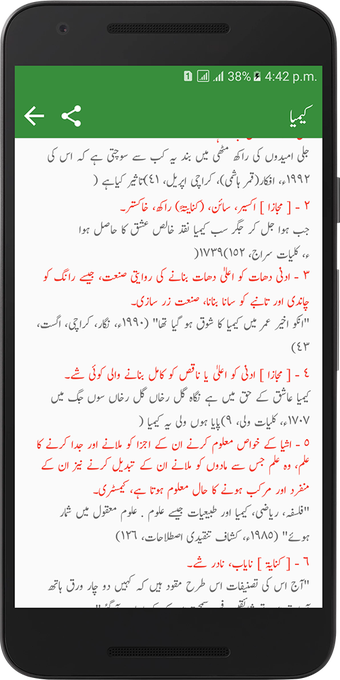 38% 4:42 p.m.
کیمیا
جلی امیدوں کی راکھ مٹھی میں بند یہ کب سے سوچتی ہے کہ اس کی
۱۹۹۲ء، افکار(قمر ہاشمی)، کراچی اپریل، ۴۱)تاثیر کیاہے (
۲ - [ مجازا ] اکسیر، سائن، (کنایۃ) راکھ، خاکستر۔
جب ہوا جل کر جگر سب کیمیا نقد خالص عشق کا حاصل ہوا
ء، کلیات سراج، ۱۵۲)۱۷۳۹(
۳ - ادنی دھات کو اعلٰی دھات بنانے کی روایتی صنعت، جیسے رانگ کو
چاندی اور تانبے کو سانا بنانا، صنعت زر سازی۔
"انکو اخیر عمر میں کیمیا کا شوق ہو گیا تھا" (۱۹۹۰ء، نگار، کراچی، اگست،
۴۳)
۴ - [ مجازا ] ادنی کو اعلیٰ یا ناقص کو کامل بنانے والی کوئی شے۔
کیمیا عاشق کے حق میں ہے نگاہ گل رخاں گل رخاں سوں جگ میں
۱۷۰۷ء، کلیات ولی، ۹)پایا ہوں ولی یہ کیمیا (
۵ - اشیا کے خواص معلوم کرنے ان کے اجزا کو ملانے اور جدا کرنے کا
علم، وہ علم جس سے مادوں کو ملانے ان کے تبدیل کرنے نیز ان کے
منفرد اور مرکب ہونے کا حال معلوم ہوتا ہے، کیمسٹری۔
"فلسفہ، ریاضی، کیمیا اور طبیعیات جیسے علوم ۔ علوم معقول میں شمار
ہوئے" (۱۹۸۵ء، کشاف تنقیدی اصطلاحات، ۱۲۶)
۶ - [ کنایۃ ] نایاب، نادر شے۔
"آج اس کی تصنیفات اس طرح مقود ہیں کہ کہیں دو چار ورق ہاتھ